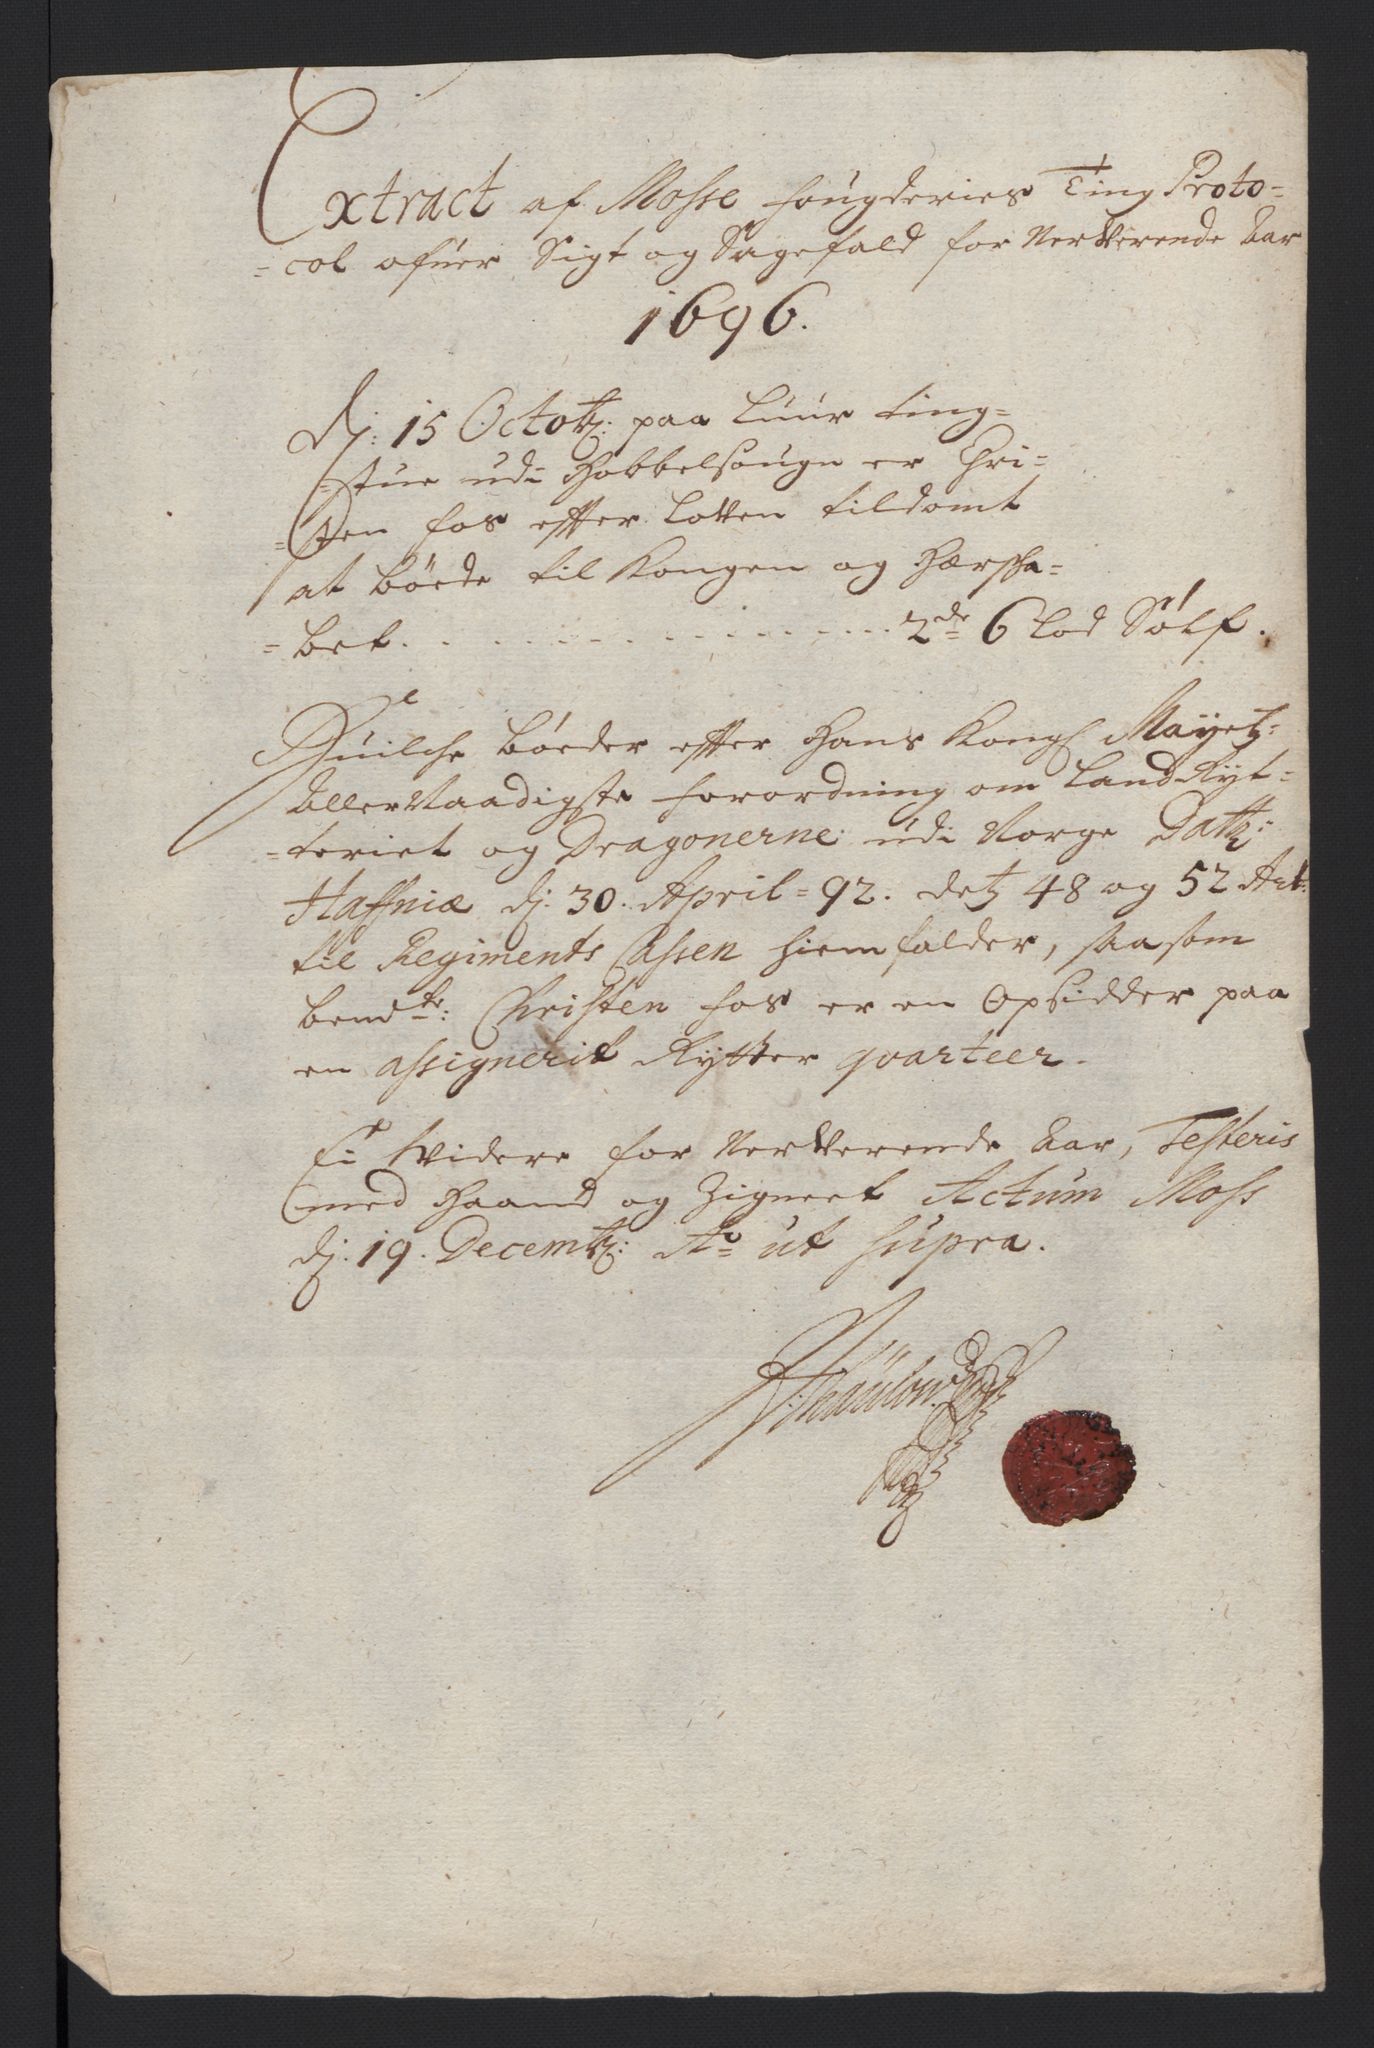 Extract af Mosse fougderies Ting Proto=
=col ofuer Sigt og Sagefald for Nerverende Aar
1696.
dj: 15 Octobr: paa Luur ting=
=stue udi Hobbelsougn er Chri=
=sten fos efter Loven tildømt
at bøede til Kongen og Herska=
=bet. . . . . . . . . . . . 2de 6 lod Sølf.
Huilche bøeder efter Hans Kongl Mayetz:
Allernaadigste forordning om Land Ryt=
=teriet og Dragonerne udi Norge Datt:
Haffniæ dj: 30. April=92. detz 48 og 52 Art:
til Regiments Cassen hiemfalder, saasom
bemdte: Christen fos er en Opsidder paa
en assignerit Rytter qvarteer.
Ei Videre for Nerverende Aar, Testeris
med Haand og Zigneet Actum Moss
dj: 19. Decembr: Ao ut supra.